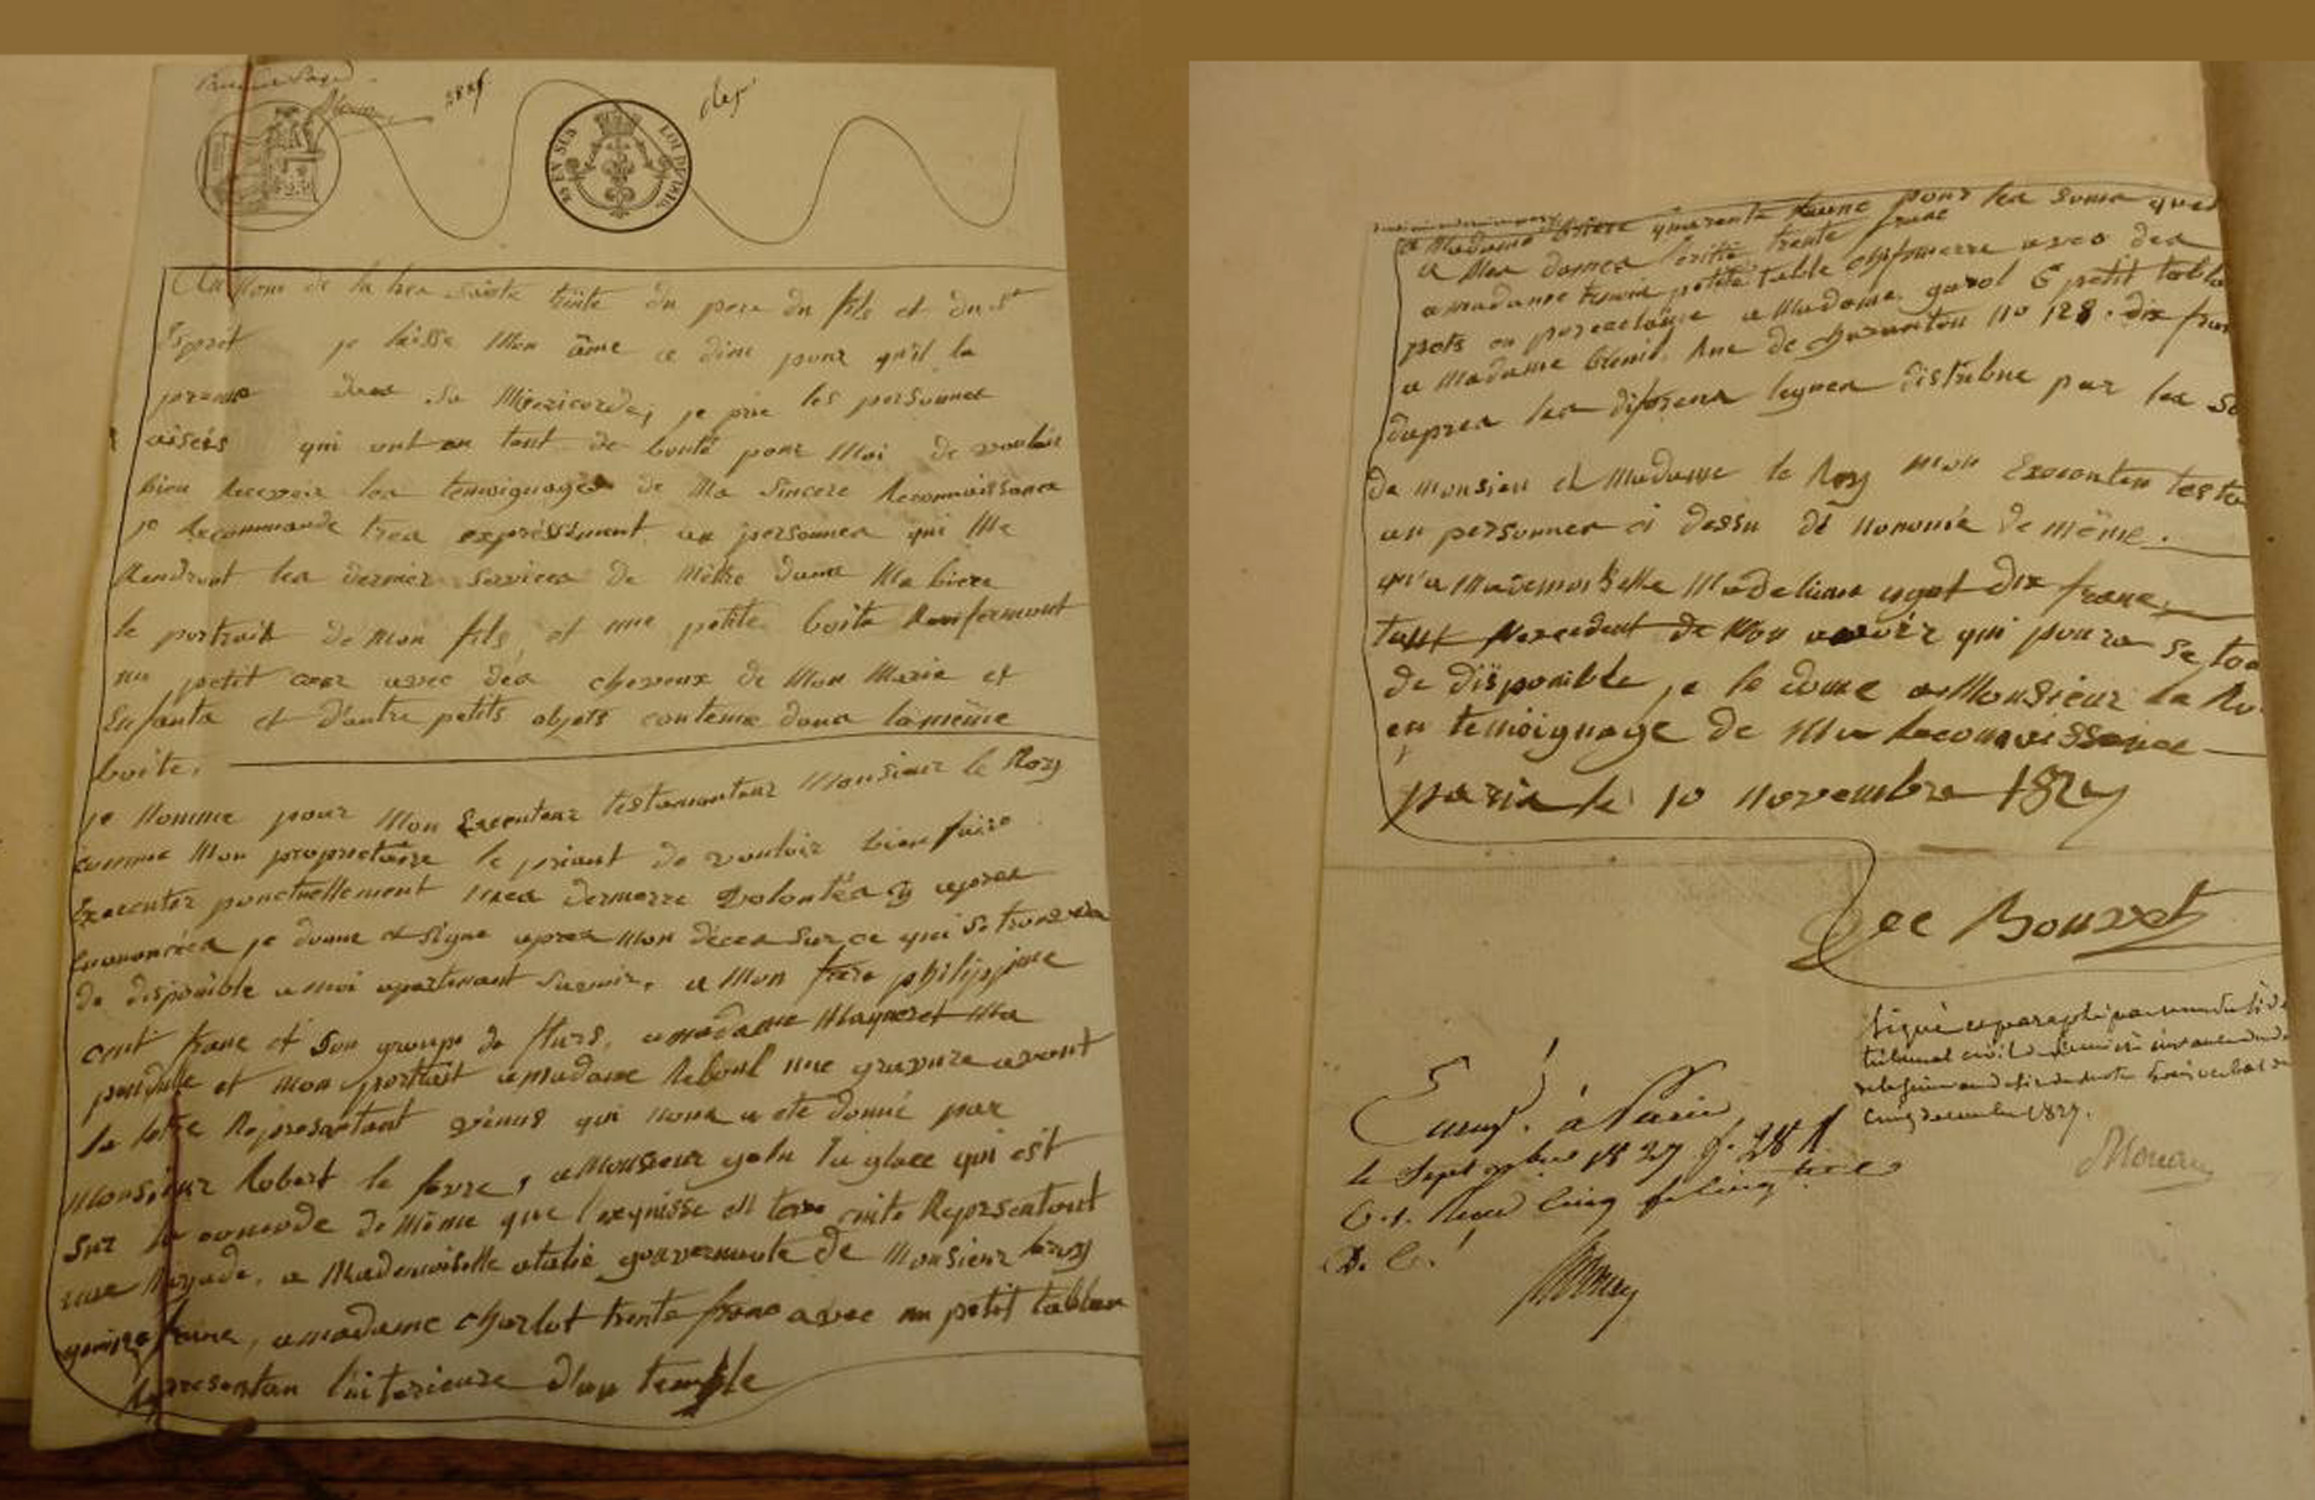 28 8f
25 EN SUS
LOI DE 1816.
Au Nom de la tres sainte trinite du pere du fils et du St
Esprit je laisse Mon âme a dieu pour qu'il la
prenne dans Sa Misericorde, je prie les personnes
aisées qui ont eu tant de bonté pour Moi de vouloir
bien Recevoir les temoignages de Ma Sincere Reconnaissance
je Recommande tres expréssément au personnes qui Me
Rendront les dernier Services de Mêttre dans Ma biere
le portrait de Mon fils, et une petite boite Renfermant
un petit cœur avec des cheveux de Mon Marie et
Enfants et d'autre petits objets contenu dans la même
boite.
je Nomme pour Mon Executeur testamenteur Monsieur le Roy
comme Mon propriétaire le priant de vouloir bien faire
Executer ponctuellement mes dernierre Volontés Cy apres
Enoncées je donne et signe apres Mon déces Sur ce qui se trouvera
de disponible a moi apartenant Savoir, a Mon frere philippine
cent franc et Son groupe de fleurs, a madame Mayneret Ma
pendulle et mon portrait a madame Reboul une gravure avant
la lettre Représentant vénus qui nous a ete donné par
Monsieur Robert le fevre, a Monsieur la glace qui est
Sur la comode de Même que l'esquisse en terre cuite Représentant
une Nayade, a Mademoiselle atalie gouvernante de Monsieur
quinze franc, a madame Charlot trente franc avec un petit tableau
Représentan l'interieure d'un temple
a Madame quarante franc pour les soins que
a Mes dames trente franc
a madame petite table chifonierre avec des
pots en porcelaine a Madame 6 petit tabl
a Madame Rue de charanton no 128. dix fran
dapres les diferens legues distribue par les So
de monsieu et Madame le Roy Mon Executeu testa
au personnes ci dessu dé nomée de même.
qu'a Mademoiselle Madeleine ugot dix franc,
tout Excedent de Mon avoir qui poura se trou
de disponible je le donne a Monsieur le Ro
en temoignage de Ma Reconnaissance
paris le 10 novembre 182
Bouvet
Signé et paraphé par nous
tribunal civil de
cinq decembre 1827.
Enreg. à Paris
le Sept Xbre 1827 f. 28
C. 1. Reçu cinq f cinquante c
D. C.